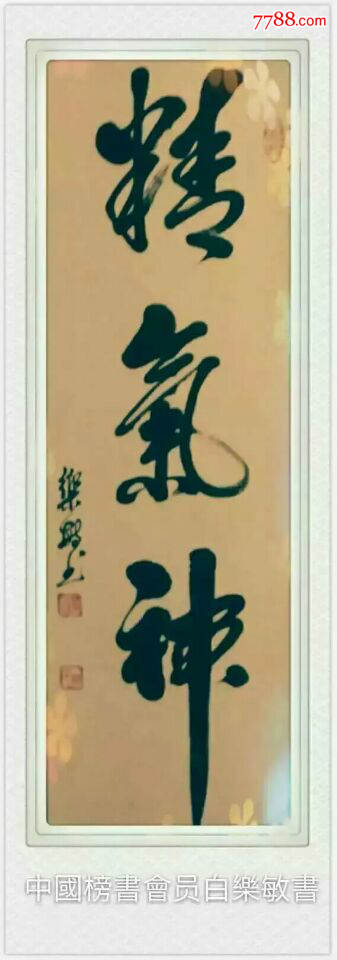 7788.com
精氣神
樂敏书
中國榜書會员白樂敏書